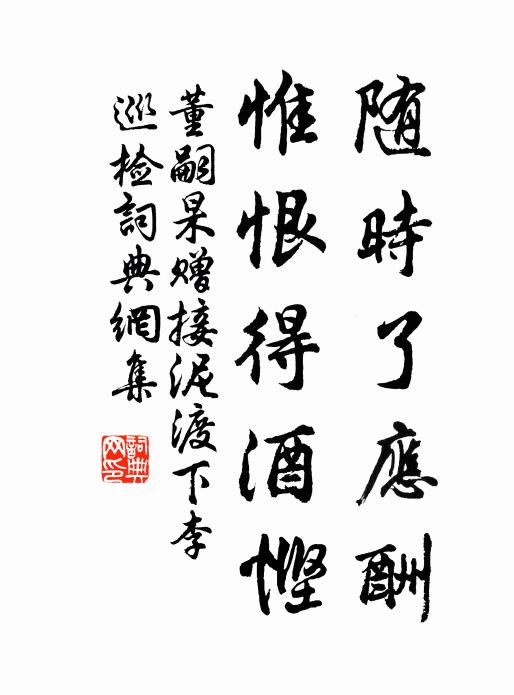 随時了應酬
惟恨得酒慳
董嗣杲赠接泥渡下李
巡检詞典網集
詞典网印